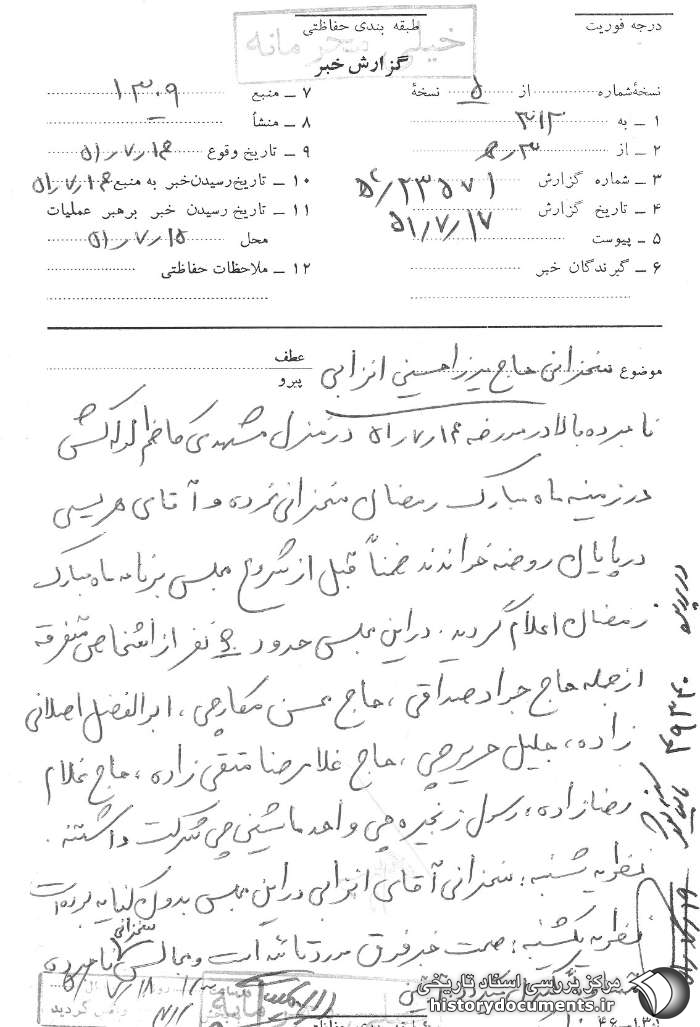 درجه فوریت
طبقه بندی حفاظتی
خیلی محرمانه
گزارش خبر
نسخهٔ شماره از ۵ نسخهٔ
۱ ـ به ۳۱۲
۲ ـ از
۳ ـ شماره گزارش
۴ ـ تاریخ گزارش ۵۱٫۷٫۱۷
۵ ـ پیوست
۶ ـ گیرندگان خبر
۷ ـ منبع ۱۳۰۹
۸ ـ منشأ
۹ ـ تاریخ وقوع ۵۱٫۷٫۱۴
۱۰ ـ تاریخ رسیدن خبر به منبع ۵۱٫۷٫۱۴
۱۱ ـ تاریخ رسیدن خبر برهبر عملیات
محل ۵۱٫۷٫۱۵
۱۲ ـ ملاحظات حفاظتی
موضوع سخنرانی حاج میرزا حسین انزابی
عطف
پیرو
نامبرده بالا در مورخه ۵۱٫۷٫۱۴ در منزل مشهدی کاظم لوله کش
در زمینه ماه مبارک رمضان سخنرانی نموده و آقای هریسی
در پایان روضه خواندند ضمناً قبل از شروع مجلس برنامه ماه مبارک
رمضان اعلام گردید. در این مجلس حدود نفر از اشخاص متفرقه
از جمله حاج جواد صداقی ، حاج محسن ، ابوالفضل اصلانی
زاده ، جلیل حریرچی ، حاج غلامرضا متقی زاده ، حاج غلام
رضازاده ، رسول زنجیره چی و احد ماشینچی شرکت داشتند .
نظریه شنبه : سخنرانی آقای انزابی در این مجلس بدون کنایه بوده است
نظریه یکشنبه : صحت خبر فوق مورد تائید است و مجالس سخنرانی نامبرده
مرکز بررسی اسناد تاریخی
historydocuments.ir